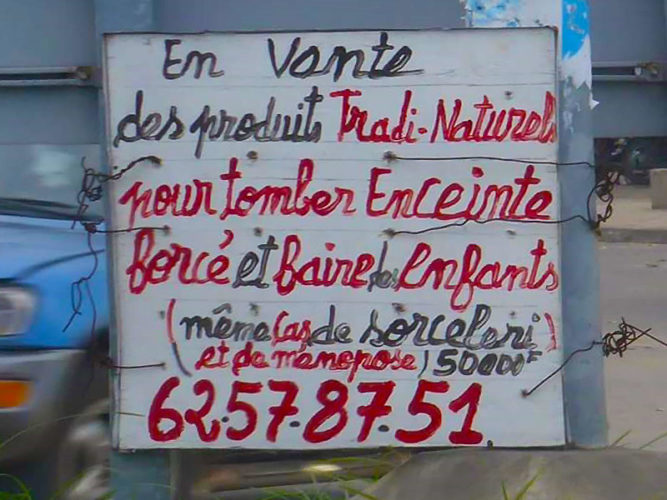 En Vante
des produits Tradi-Naturels
pour tomber Enceinte
forcé et faire des Enfants
(même Cas de sorceleri)
et de menopose) 50000F
62.57.87.51.